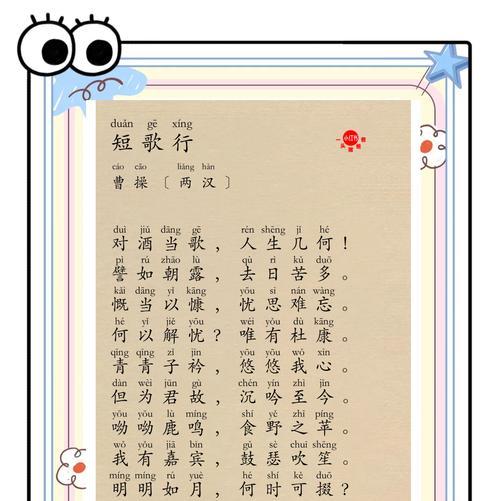 duǎn gē xíng
短歌行
cáo cāo liǎng hàn
曹操〔两汉〕
小红书
duì jiǔ dāng gē rén shēng jǐ hé
对酒当歌，人生几何！
pì rú zhāo lù qù rì kǔ duō
譬如朝露，去日苦多。
kǎi dāng yǐ kāng yōu sī nán wàng
慨当以慷，忧思难忘。
hé yǐ jiě yōu wéi yǒu dù kāng
何以解忧？唯有杜康。
qīng qīng zǐ jīn yōu yōu wǒ xīn
青青子衿，悠悠我心。
dàn wèi jūn gù chén yín zhì jīn
但为君故，沉吟至今。
yōu yōu lù míng shí yě zhī píng
呦呦鹿鸣，食野之苹。
wǒ yǒu jiā bīn gǔ sè chuī shēng
我有嘉宾，鼓瑟吹笙。
míng míng rú yuè hé shí kě duō
明明如月，何时可掇？